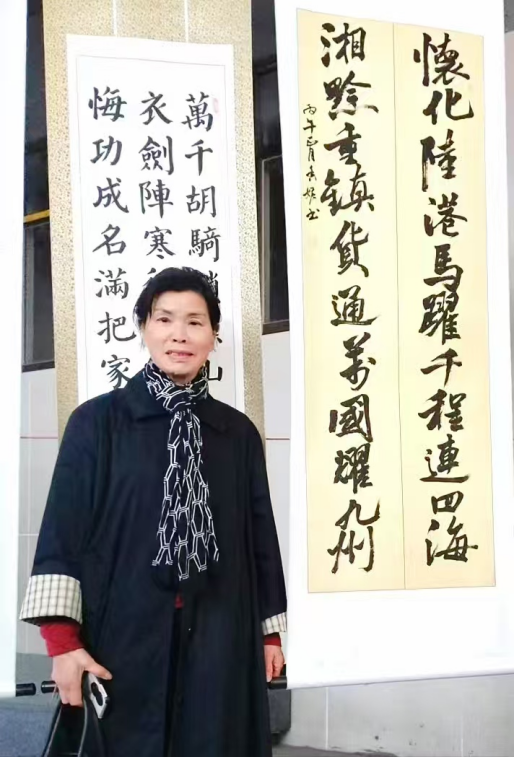 懷化陸港馬躍千程連四海
湘黔重鎮貨通萬國耀九州
丙午正月
萬千胡騎山
衣劍陣寒
悔功成名滿把家